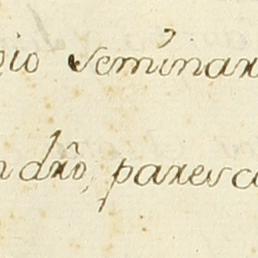 gio semínar
n drõ, paresc